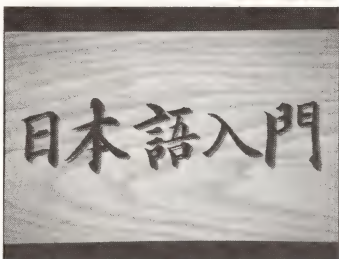 日本語入門